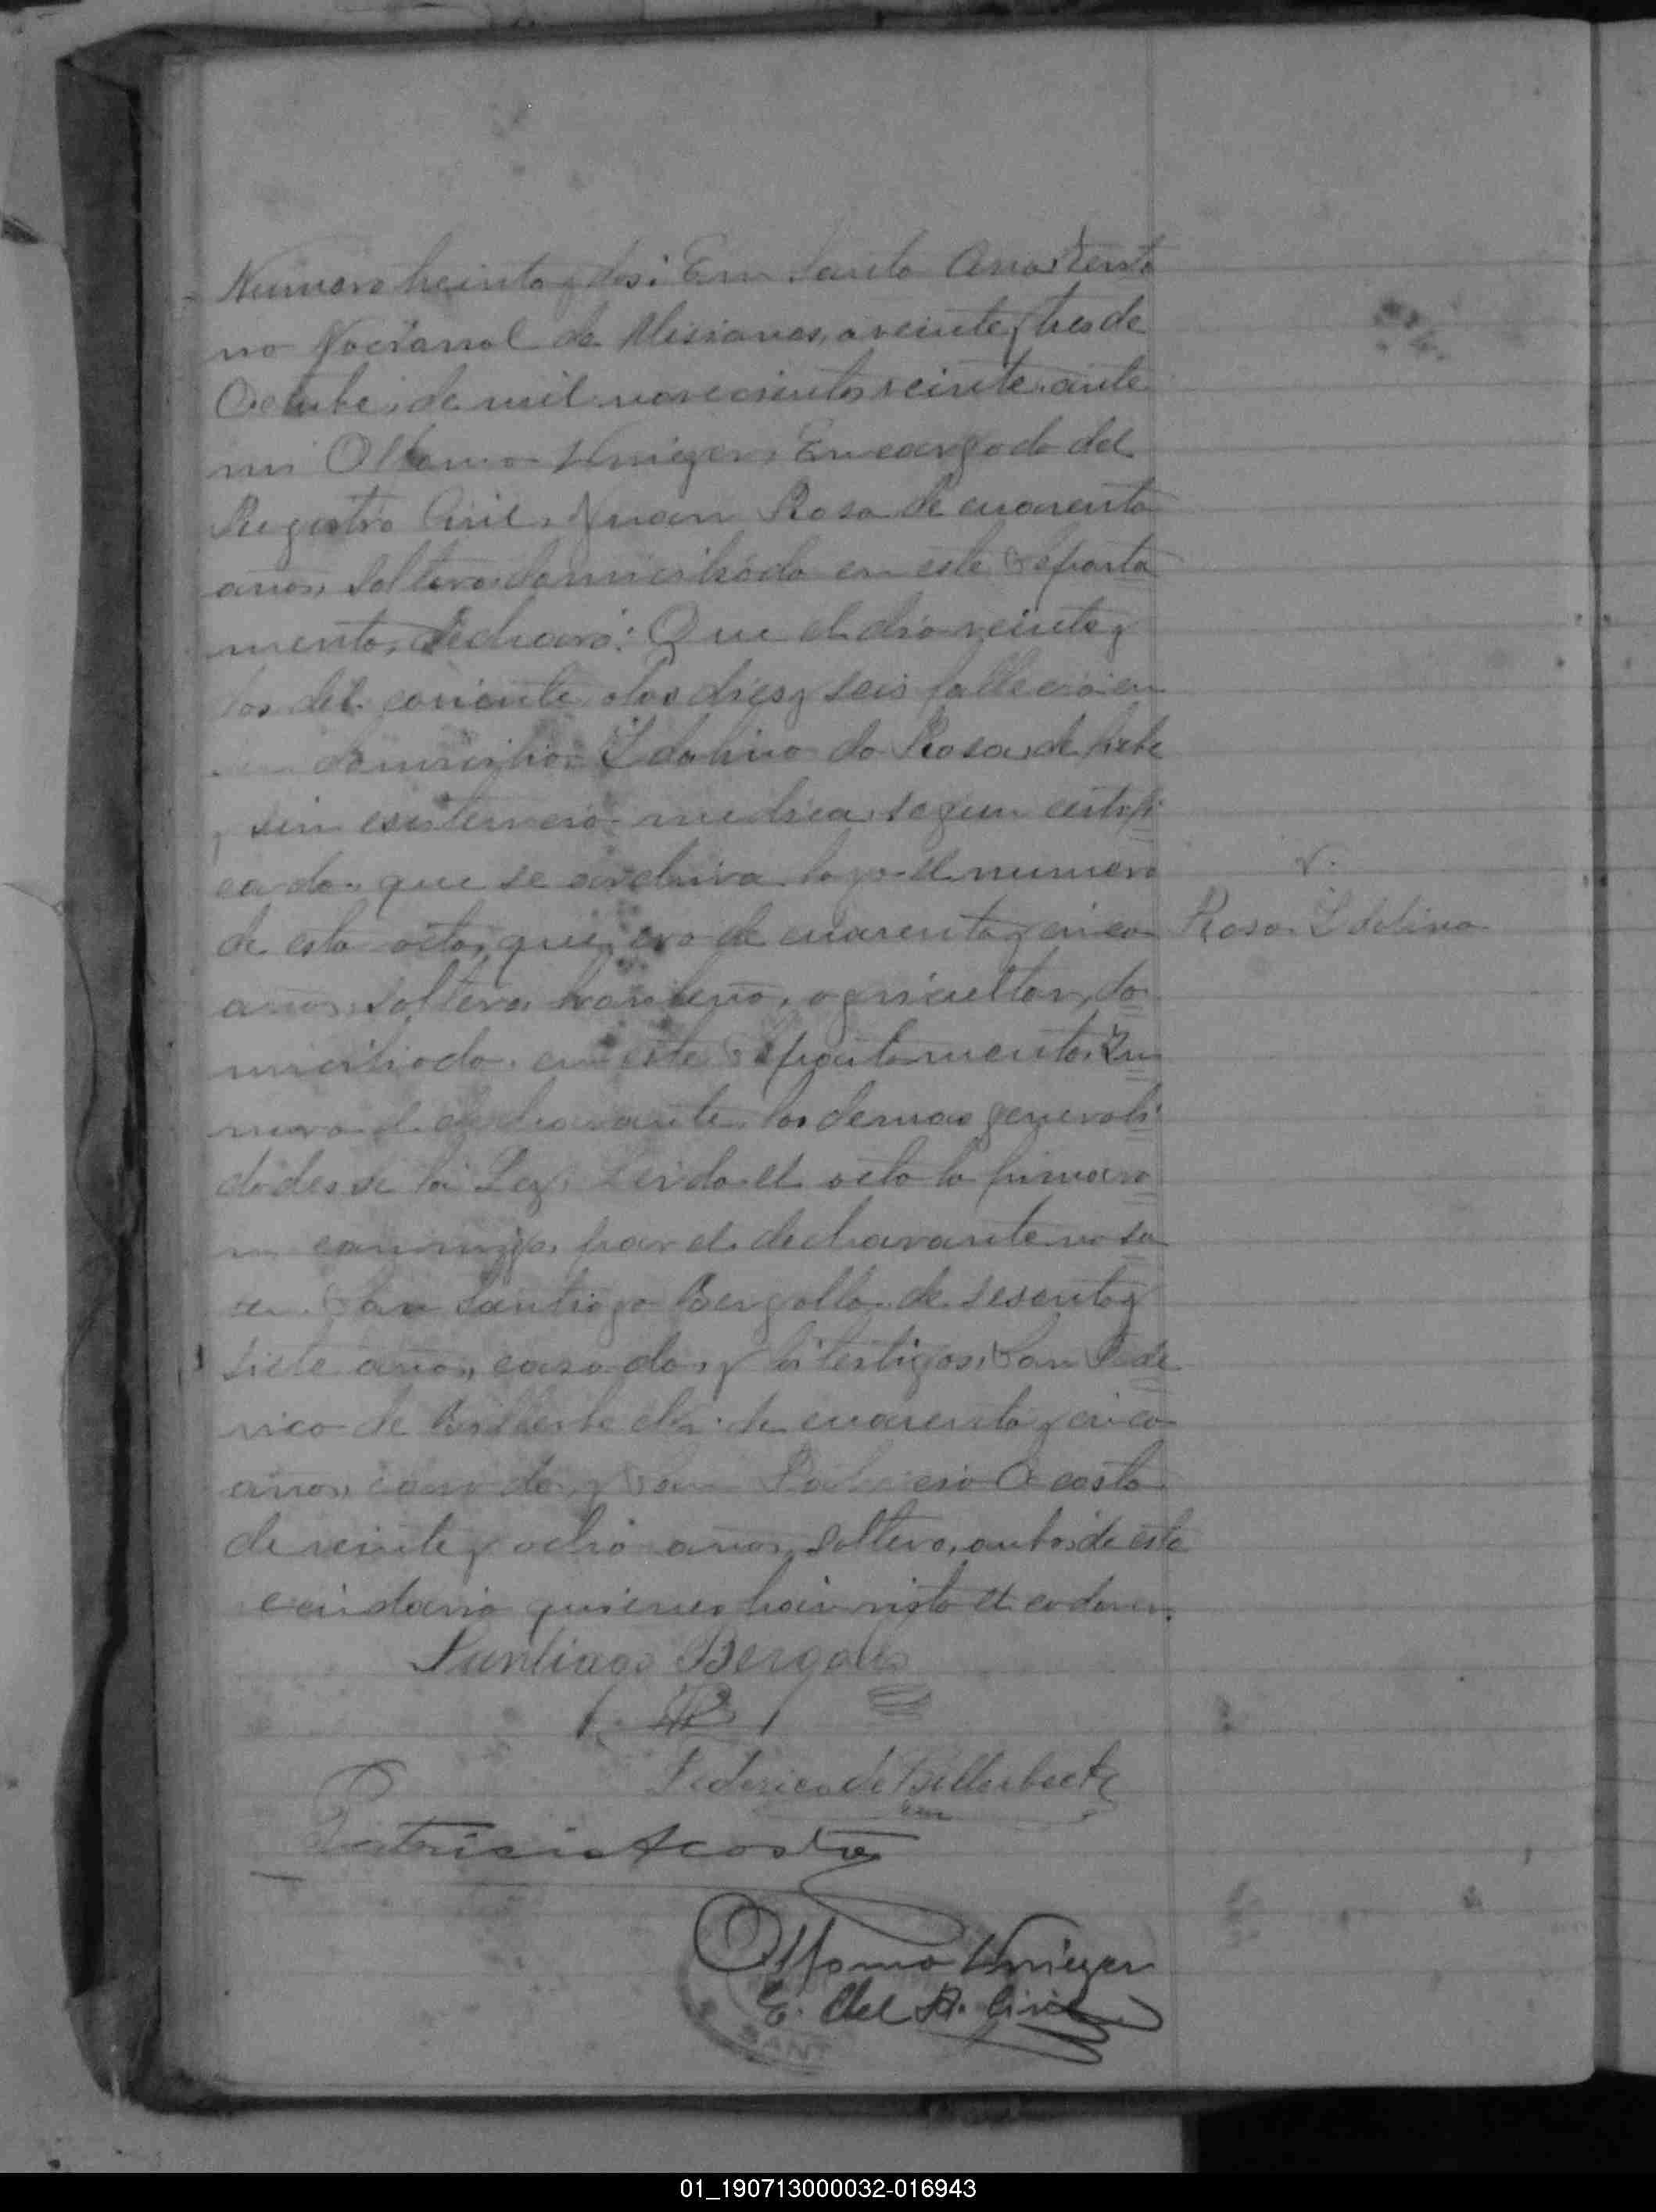 Numero treinta y dos: En Santa Ana, Territo
rio Nacional de Misiones, a veinte y tres de
Octubre, de mil novecientos veinte, ante
mi Encargado del
Registro Civil, Juan Rosa de cuarenta
años, soltero, domiciliado en este Departa
mento, declaró: Que el dia veinte y
dos del coriente, a las dies y seis fallecio en
domicilio, Idalino da Rosa, de
sin medica, segun certifi
cado que se archiva bajo el numero
de esta acta, que era de cuarenta y cinco
años, soltero, agricultor, do
miciliado en este Departamento. Yn
las demas generali
dades de la Ley. Leida el acta la firmaro
n conmigo, por el declarante no sa
ber, Don Santiago Bergallo de sesenta y
siete años, casado, y los testigos, Don Fede
rico de de cuarenta y cinco
años, casado, y Don Patricio Acosta
de veinte y ocho años, soltero, ambos de este
quienes han visto el cadaver.
Rosa Idalino
Santiago Bergallo
Federico de Billerbeck
Patricio Acosta
E. del R. Civil
SANT
01_190713000032-016943